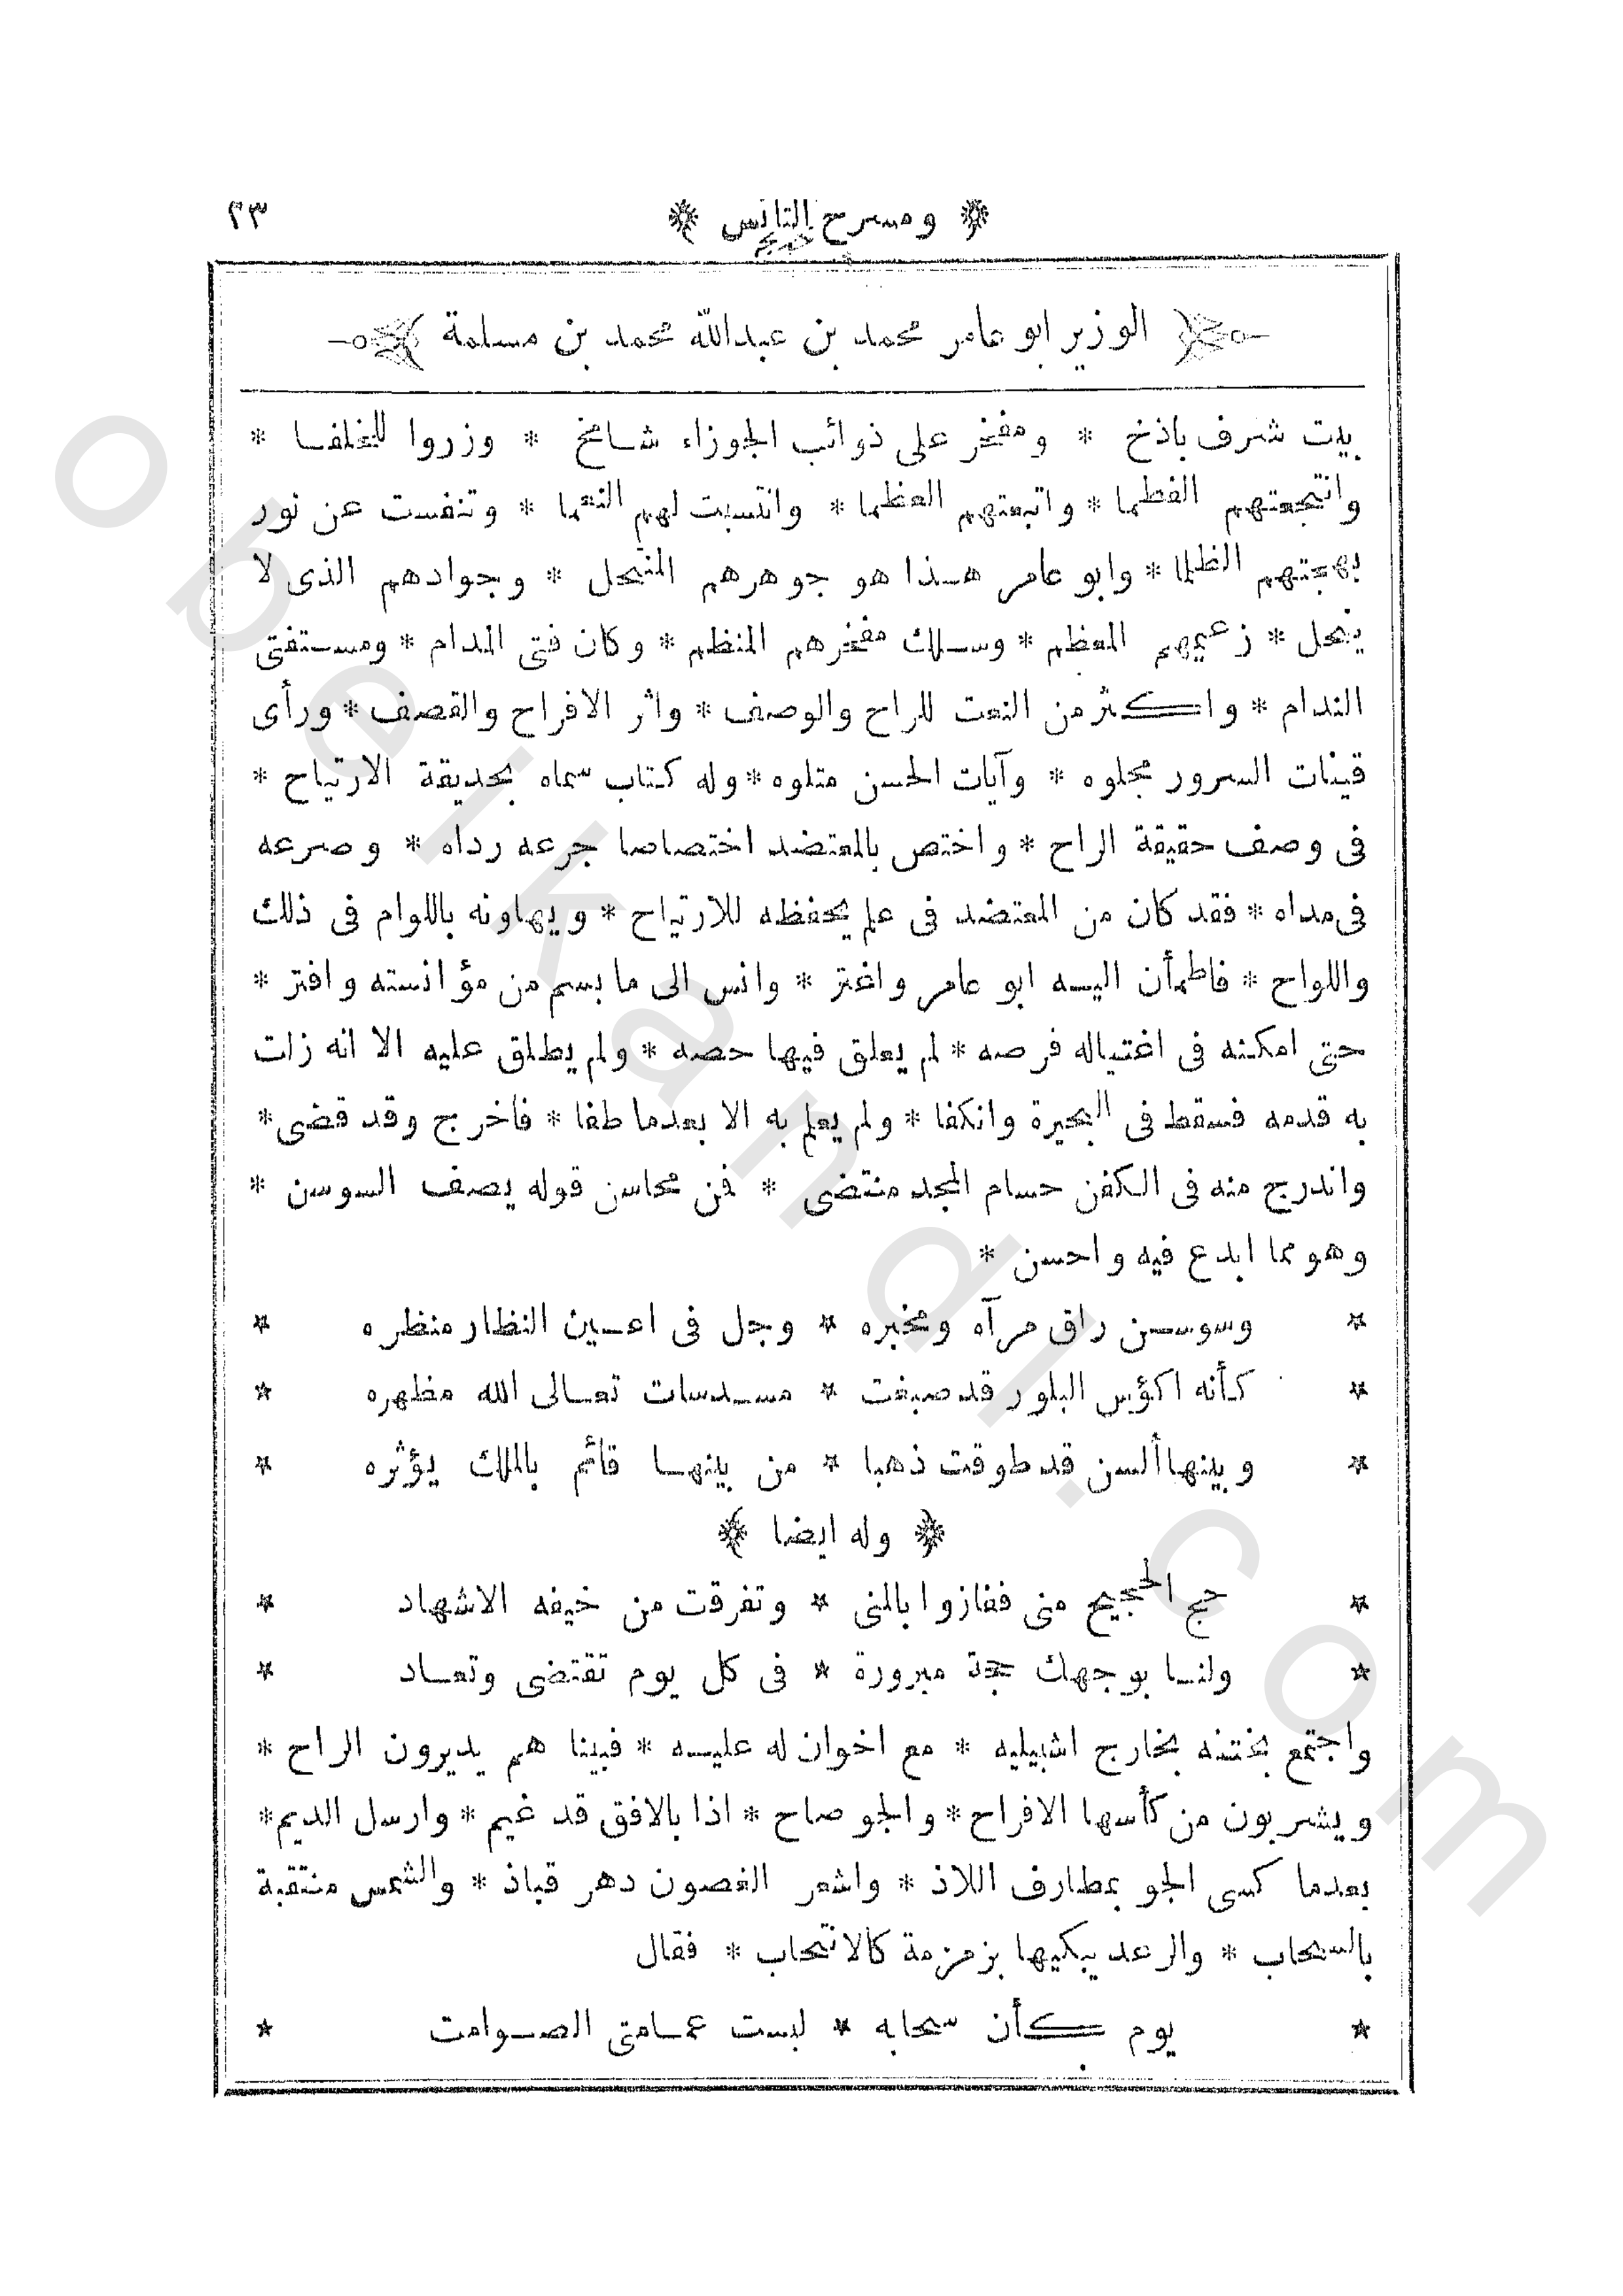 ﴿ ومسرح التانس ﴾ ٢٣
الوزير ابو عامر محمد بن عبدالله محمد بن مسلمة
بيت شرف باذخ * ومفخر على ذوائب الجوزاء شامخ * وزروا للخلفا *
وانتجعتهم الفطما * واتبعتهم العظما * وانتسبت لهم النعما * وتنفست عن نور
بهجتهم الظلما * وابو عامر هذا هو جوهرهم المنتحل * وجوادهم الذى لا
ينحل * زعيمهم المعظم * وسلك مفخرهم المنظم * وكان فتى المدام * ومستفتى
الندام * واكثر من النعت للراح والوصف * واثر الافراح والقصف * ورأى
قينات السرور مجلوه * وآيات الحسن متلوه * وله كتاب سماه بحديقة الارتياح *
فى وصف حقيقة الراح * واختص بالمعتضد اختصاصا جرعه رداه * وصرعه
فى مداه * فقد كان من المعتضد فى علم يحفظه للارتياح * ويهاونه باللوام فى ذلك
واللواح * فاطمأن اليه ابو عامر واغتر * وانس الى ما بسم من مؤانسته وافتر *
حتى امكنه فى اغتياله فرصه * لم يعلق فيها حصه * ولم يطلق عليه الا انه زلت
به قدمه فسقط فى البحيرة وانكفا * ولم يعلم به الا بعدما طفا * فاخرج وقد قضى *
واندرج منه فى الكفن حسام المجد منتضى * فمن محاسن قوله يصف السوسن *
وهو مما ابدع فيه واحسن *
* وسوسن راق مرآه ومخبره * وجل فى اعين النظار منظره *
* كأنه اكؤس البلور قد صبغت * مسدسات تعالى الله مظهره *
* وبينها ألسن قد طوقت ذهبا * من بينها قائم بالملك يؤثره *
﴿ وله ايضا ﴾
* حج الحجيج منى ففازوا بالمنى * وتفرقت من خيفه الاشهاد *
* ولنا بوجهك حجة مبرورة * فى كل يوم تقتضى وتعاد *
واجتمع بختنه بخارج اشبيليه * مع اخوان له عليه * فبينا هم يديرون الراح *
ويشربون من كأسها الافراح * والجو صاح * اذا بالافق قد غيم * وارسل الديم *
بعدما كسى الجو بمطارف اللاذ * واشعر الغصون دهر قباذ * والشمس منتقبة
بالسحاب * والرعد يبكيها بزمزمة كالانتحاب * فقال
* يوم كأن سحابه * لبست عمامتى الصوامت *
obeikandl.com